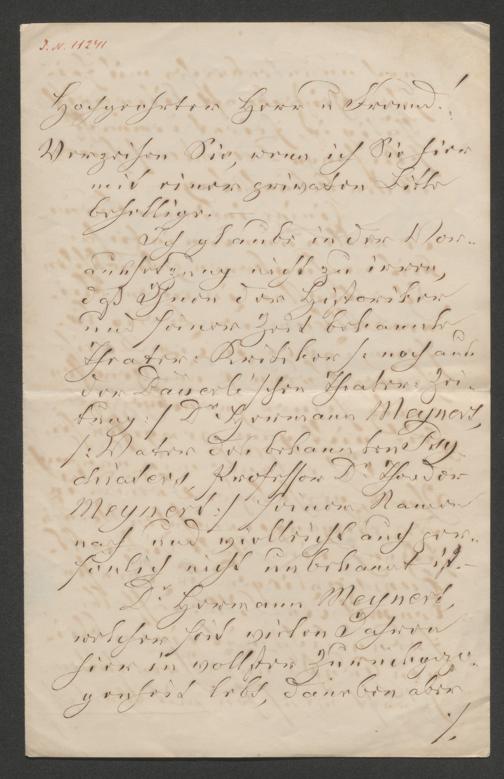 J. N. 11241
Hochgeehrter Herr u Freund!
Verzeihen Sie, wenn ich Sie hier
mit einer privaten Bitte
behellige. —
Ich glaube in der Vor-
aussetzung nicht zu irren,
daß Ihnen der Historiker
und seiner Zeit bekannte
Theater-Kritiker /: noch aus
der Bäuerle'schen Theater-Zei-
tung :/ Dr Hermann Meynert,
/: Vater des bekannten Psy-
chiaters Professor Dr Theodor
Meynert :/ seinem Namen
nach und vielleicht auch per-
sönlich nicht unbekannt ist. —
Dr Hermann Meynert,
welcher seit vielen Jahren
hier in vollster Zurückgezo-
genheit lebt, daneben aber
./.